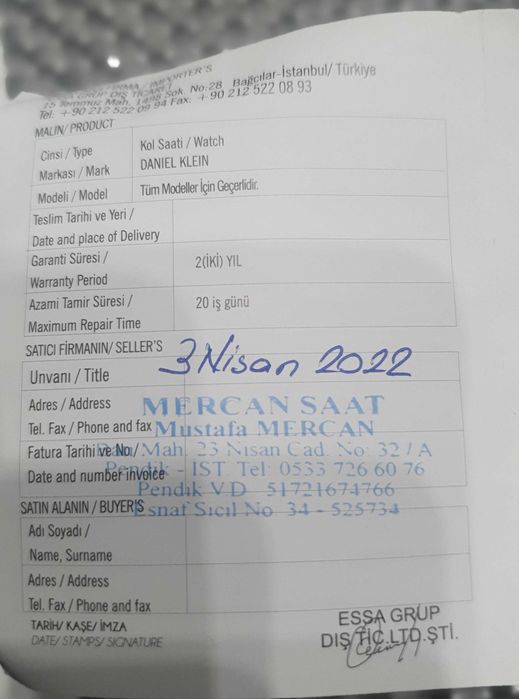 FİRMA / IMPORTER'S
ESSA GRUP DIŞ TİCARET
15 Temmuz Mah. 1498 Sok. No:28 Bağcılar-İstanbul/ Türkiye
Tel: +90 212 522 09 94 Fax: +90 212 522 08 93
MALIN/ PRODUCT
Cinsi / Type Kol Saati / Watch
Markası / Mark DANIEL KLEIN
Modeli / Model Tüm Modeller İçin Geçerlidir.
Teslim Tarihi ve Yeri /
Date and place of Delivery
Garanti Süresi /
Warranty Period
2(İKİ) YIL
Azami Tamir Süresi /
Maximum Repair Time
20 iş günü
SATICI FİRMANIN/ SELLER'S
3 Nisan 2022
Unvanı / Title
Adres / Address
Tel. Fax / Phone and fax
Fatura Tarihi ve No/
Date and number invoice
MERCAN SAAT
Mustafa MERCAN
Mah. 23 Nisan Cad. No: 32 / A
Pendik - IST. Tel: 0533 726 60 76
Pendik V.D. 51721674766
Esnaf Sicil No: 34 - 525734
SATIN ALANIN / BUYER'S
Adı Soyadı /
Name, Surname
Adres / Address
Tel. Fax / Phone and fax
TARİH/ KAŞE/ İMZA
DATE/ STAMPS/ SIGNATURE
ESSA GRUP
DIŞ TİC.LTD.ŞTİ.